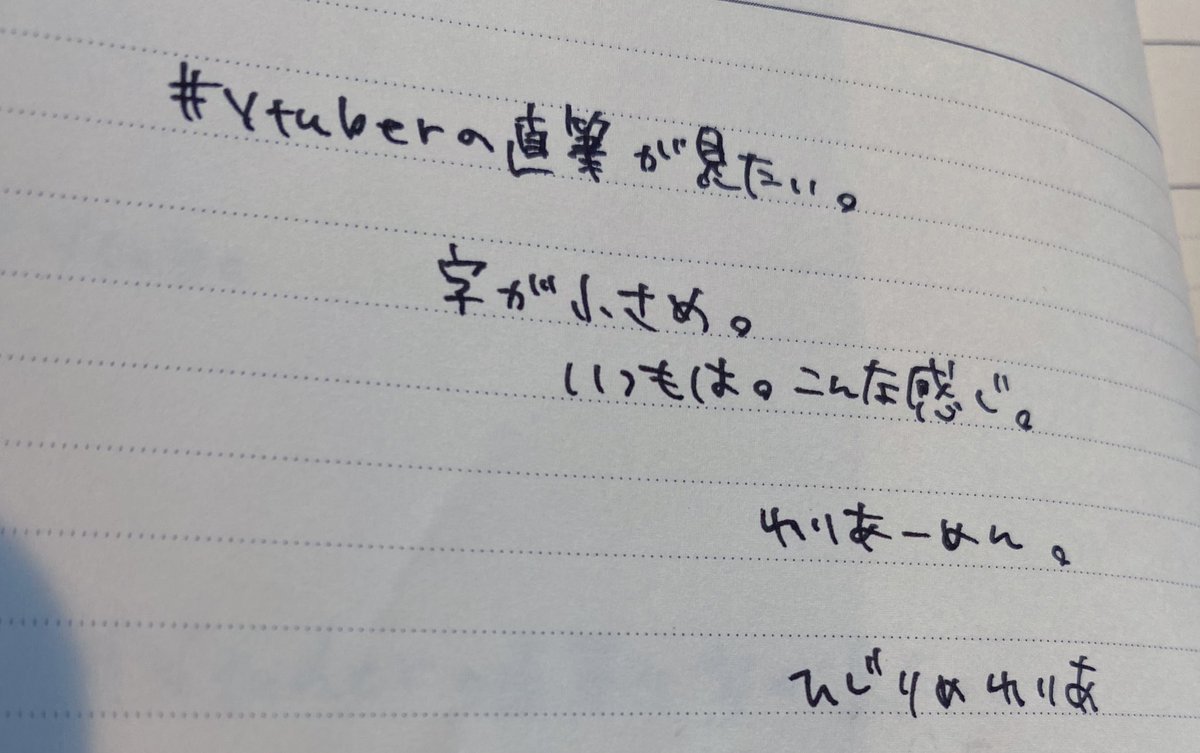 #Vtuberの直筆が見たい。
字が小さめ。
いつもは。こんな感じ。
れりあーめん。
ひじりめれりあ